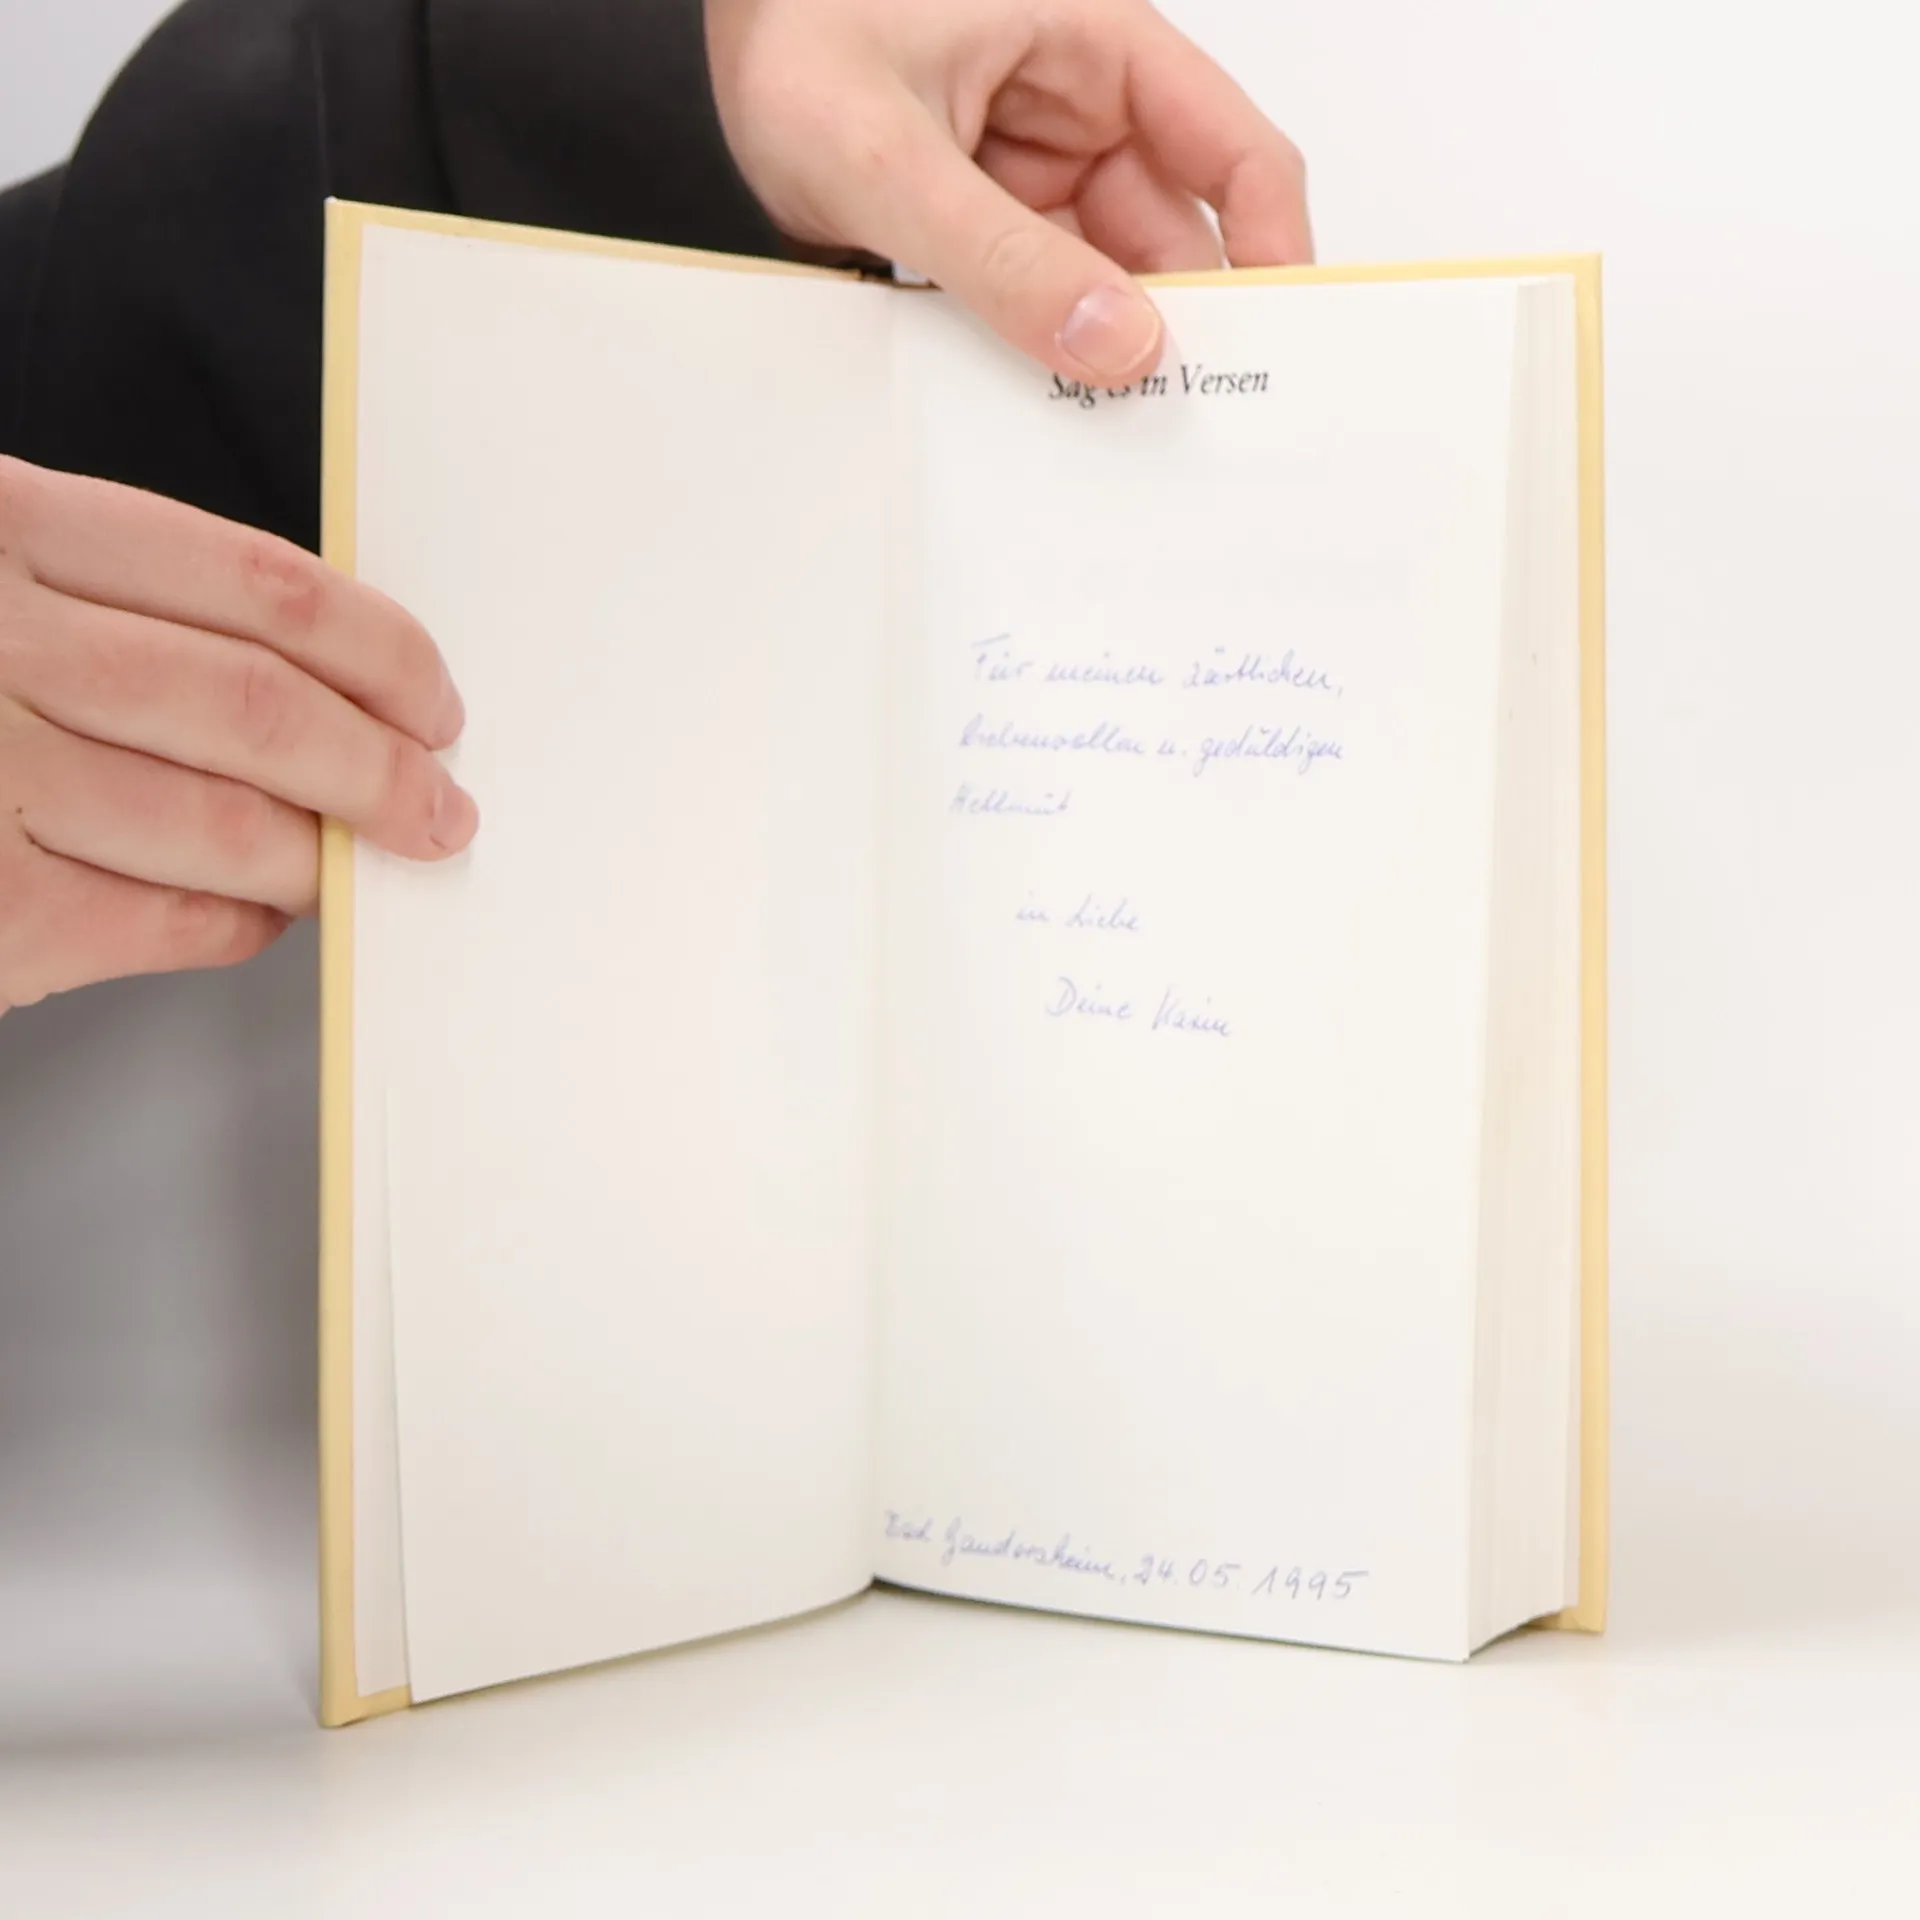 Sag es in Versen
Für meinen zärtlichen,
liebevollen u. geduldigen
Hellmut
in Liebe
Deine Karin
Bad Gandersheim, 24.05.1995